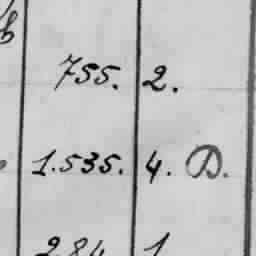 755. 2.
1.535. 4. D.
284 1